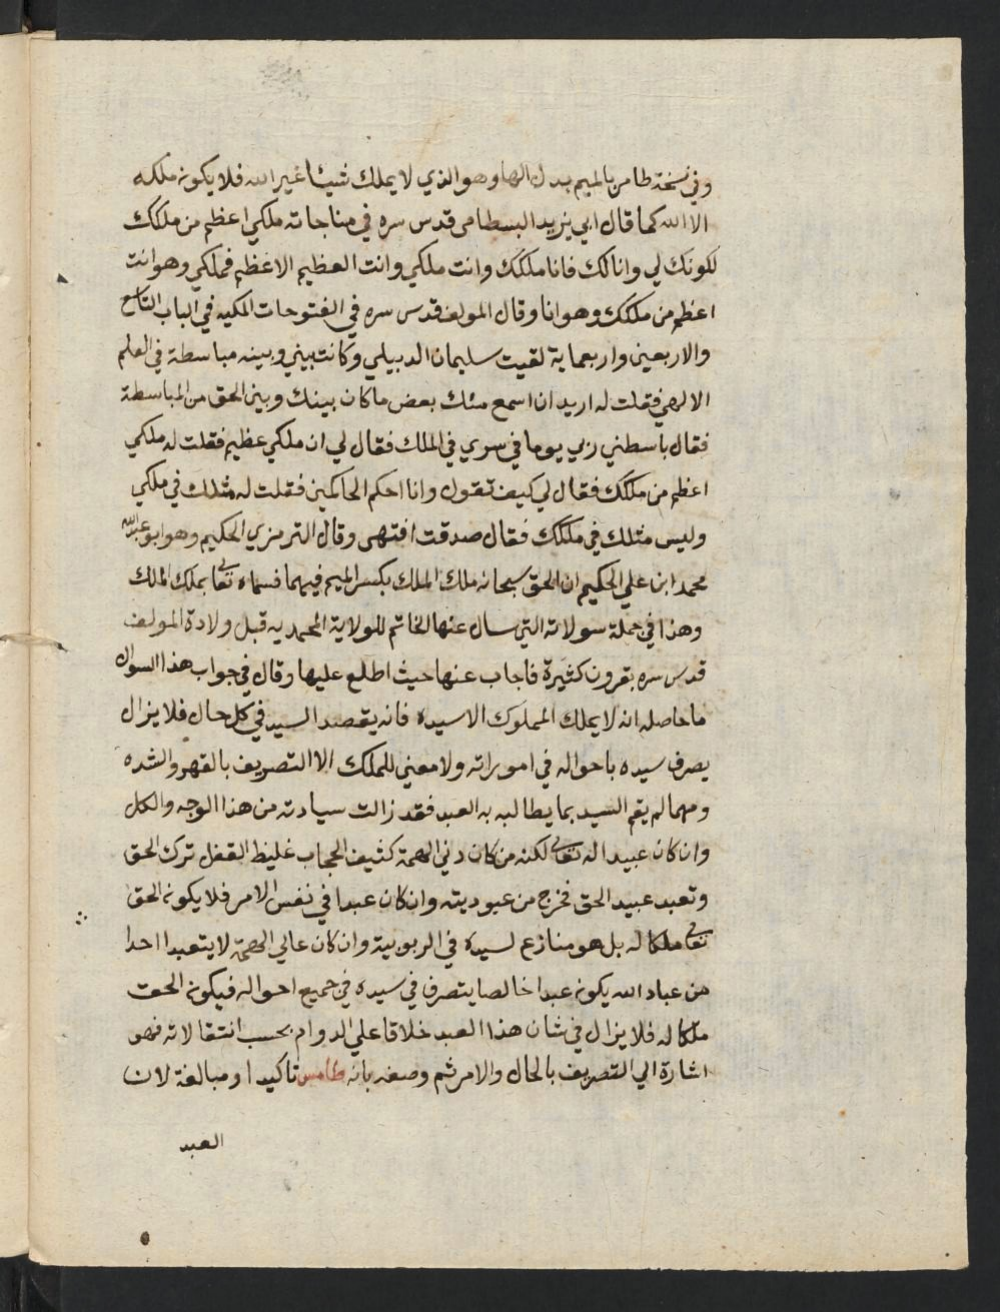 وفي نسخة طامس بالميم بدل الها وهو الذي لا يملك شيئا غير الله فلا يكون ملكه
الا الله كما قال ابي يزيد البسطامي قدس سره في مناجاته ملكي اعظم من ملكك
لكونك لي وانا لك فانا ملكك وانت ملكي وانت العظيم الاعظم فملكي وهو انت
اعظم من ملكك وهو انا وقال المولف قدس سره في الفتوحات المكيه في الباب التاسع
والاربعين واربعماية لقيت سليمان الدبيلي وكانت بيني وبينه مباسطة في العلم
الالهي فقلت له اريد ان اسمع منك بعض ما كان بينك وبين الحق من المباسطة
فقال باسطني ربي يوما في سري في الملك فقال لي ان ملكي عظيم فقلت له ملكي
اعظم من ملكك فقال لي كيف تقول وانا احكم الحاكمين فقلت له مثلك في ملكي
وليس مثلك في ملكك فقال صدقت انتهى وقال الترمزي الحكيم وهو ابو عبد الله
محمد ابن علي الحكيم ان الحق سبحانه ملك الملك بكسر الميم فيهما فسماه تعالى بملك الملك
وهذا في جملة سولاته التي سال عنها الخاتم للولاية المحمديه قبل ولادة المولف
قدس سره بقرون كثيرة فاجاب عنها حيث اطلع عليها وقال في جواب هذا السوال
ما حاصله انه لا يملك المملوك الا سيده فانه يقصد السيد في كل حال فلا يزال
يصرف سيده باحواله في اموراته ولا معني للملك الا التصريف بالقهر والشده
ومهما لم يقم السيد بما يطالبه به العبد فقد زالت سيادته من هذا الوجه والكل
وان كان عبيدا له تعالى لكنه من كان دني الهمة كثيف الحجاب غليظ القفل ترك الحق
وتعبد عبيد الحق فخرج من عبوديته وان كان عبدا في نفس الامر فلا يكون الحق
تعالى ملكا له بل هو منازع لسيده في الربوبية وان كان عالي الهمة لا يتعبدا احدا
من عباد الله يكون عبدا خالصا يتصرف في سيده في جميع احواله فيكون الحق
ملكا له فلا يزال في شان هذا العبد خلاقا علي الدوام بحسب انتقالاته فهو
اشارة الي التصريف بالحال والامر ثم وصفه بانه طامس تاكيدا ومبالغة لان
العبد